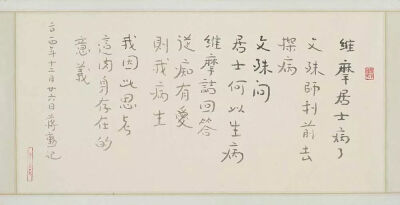 維摩居士病了
文殊師利前去
探病
文殊问
居士何以生病
維摩詰回答
從痴有愛
則我病生
我因此思考
這肉身存在的
意義
二〇一四年十二月廿六日 蔣勳记